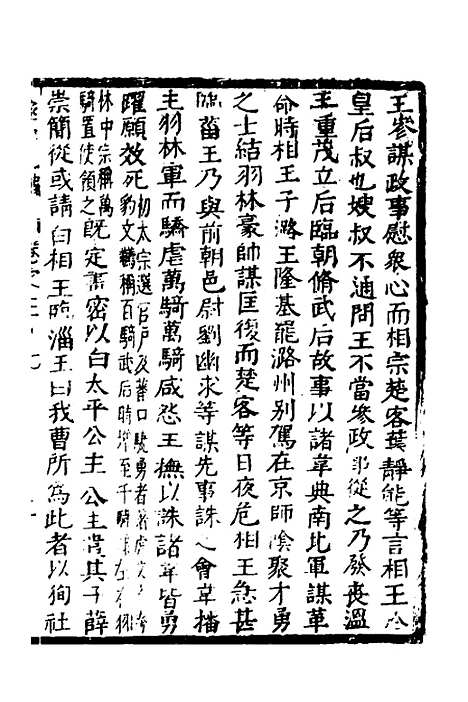 王參謀政事慰衆心而相宗楚客葉靜能等言相王今
皇后叔也嫂叔不通問王不當參政事從之乃發喪溫
王重茂立后臨朝脩武后故事以諸韋典南北軍謀革
命時相王子潞王隆基罷潞州别駕在京師隂聚才勇
之士結羽林豪帥謀匡復而楚客等日夜危相王急甚
臨菑王乃與前朝邑尉劉幽求等謀先事誅之會韋播
主羽林軍而驕虐萬騎萬騎咸怨王撫以誅諸韋皆勇
躍願效死初太宗選官戶及蕃口驍勇者著虎文
豹文韉稱百騎武后時增至千騎隸左右羽
林中宗稱萬
騎置使領之旣定議密以白太平公主公主遣其子薛
崇簡從或請白相王臨淄王曰我曹所爲此者以狥社